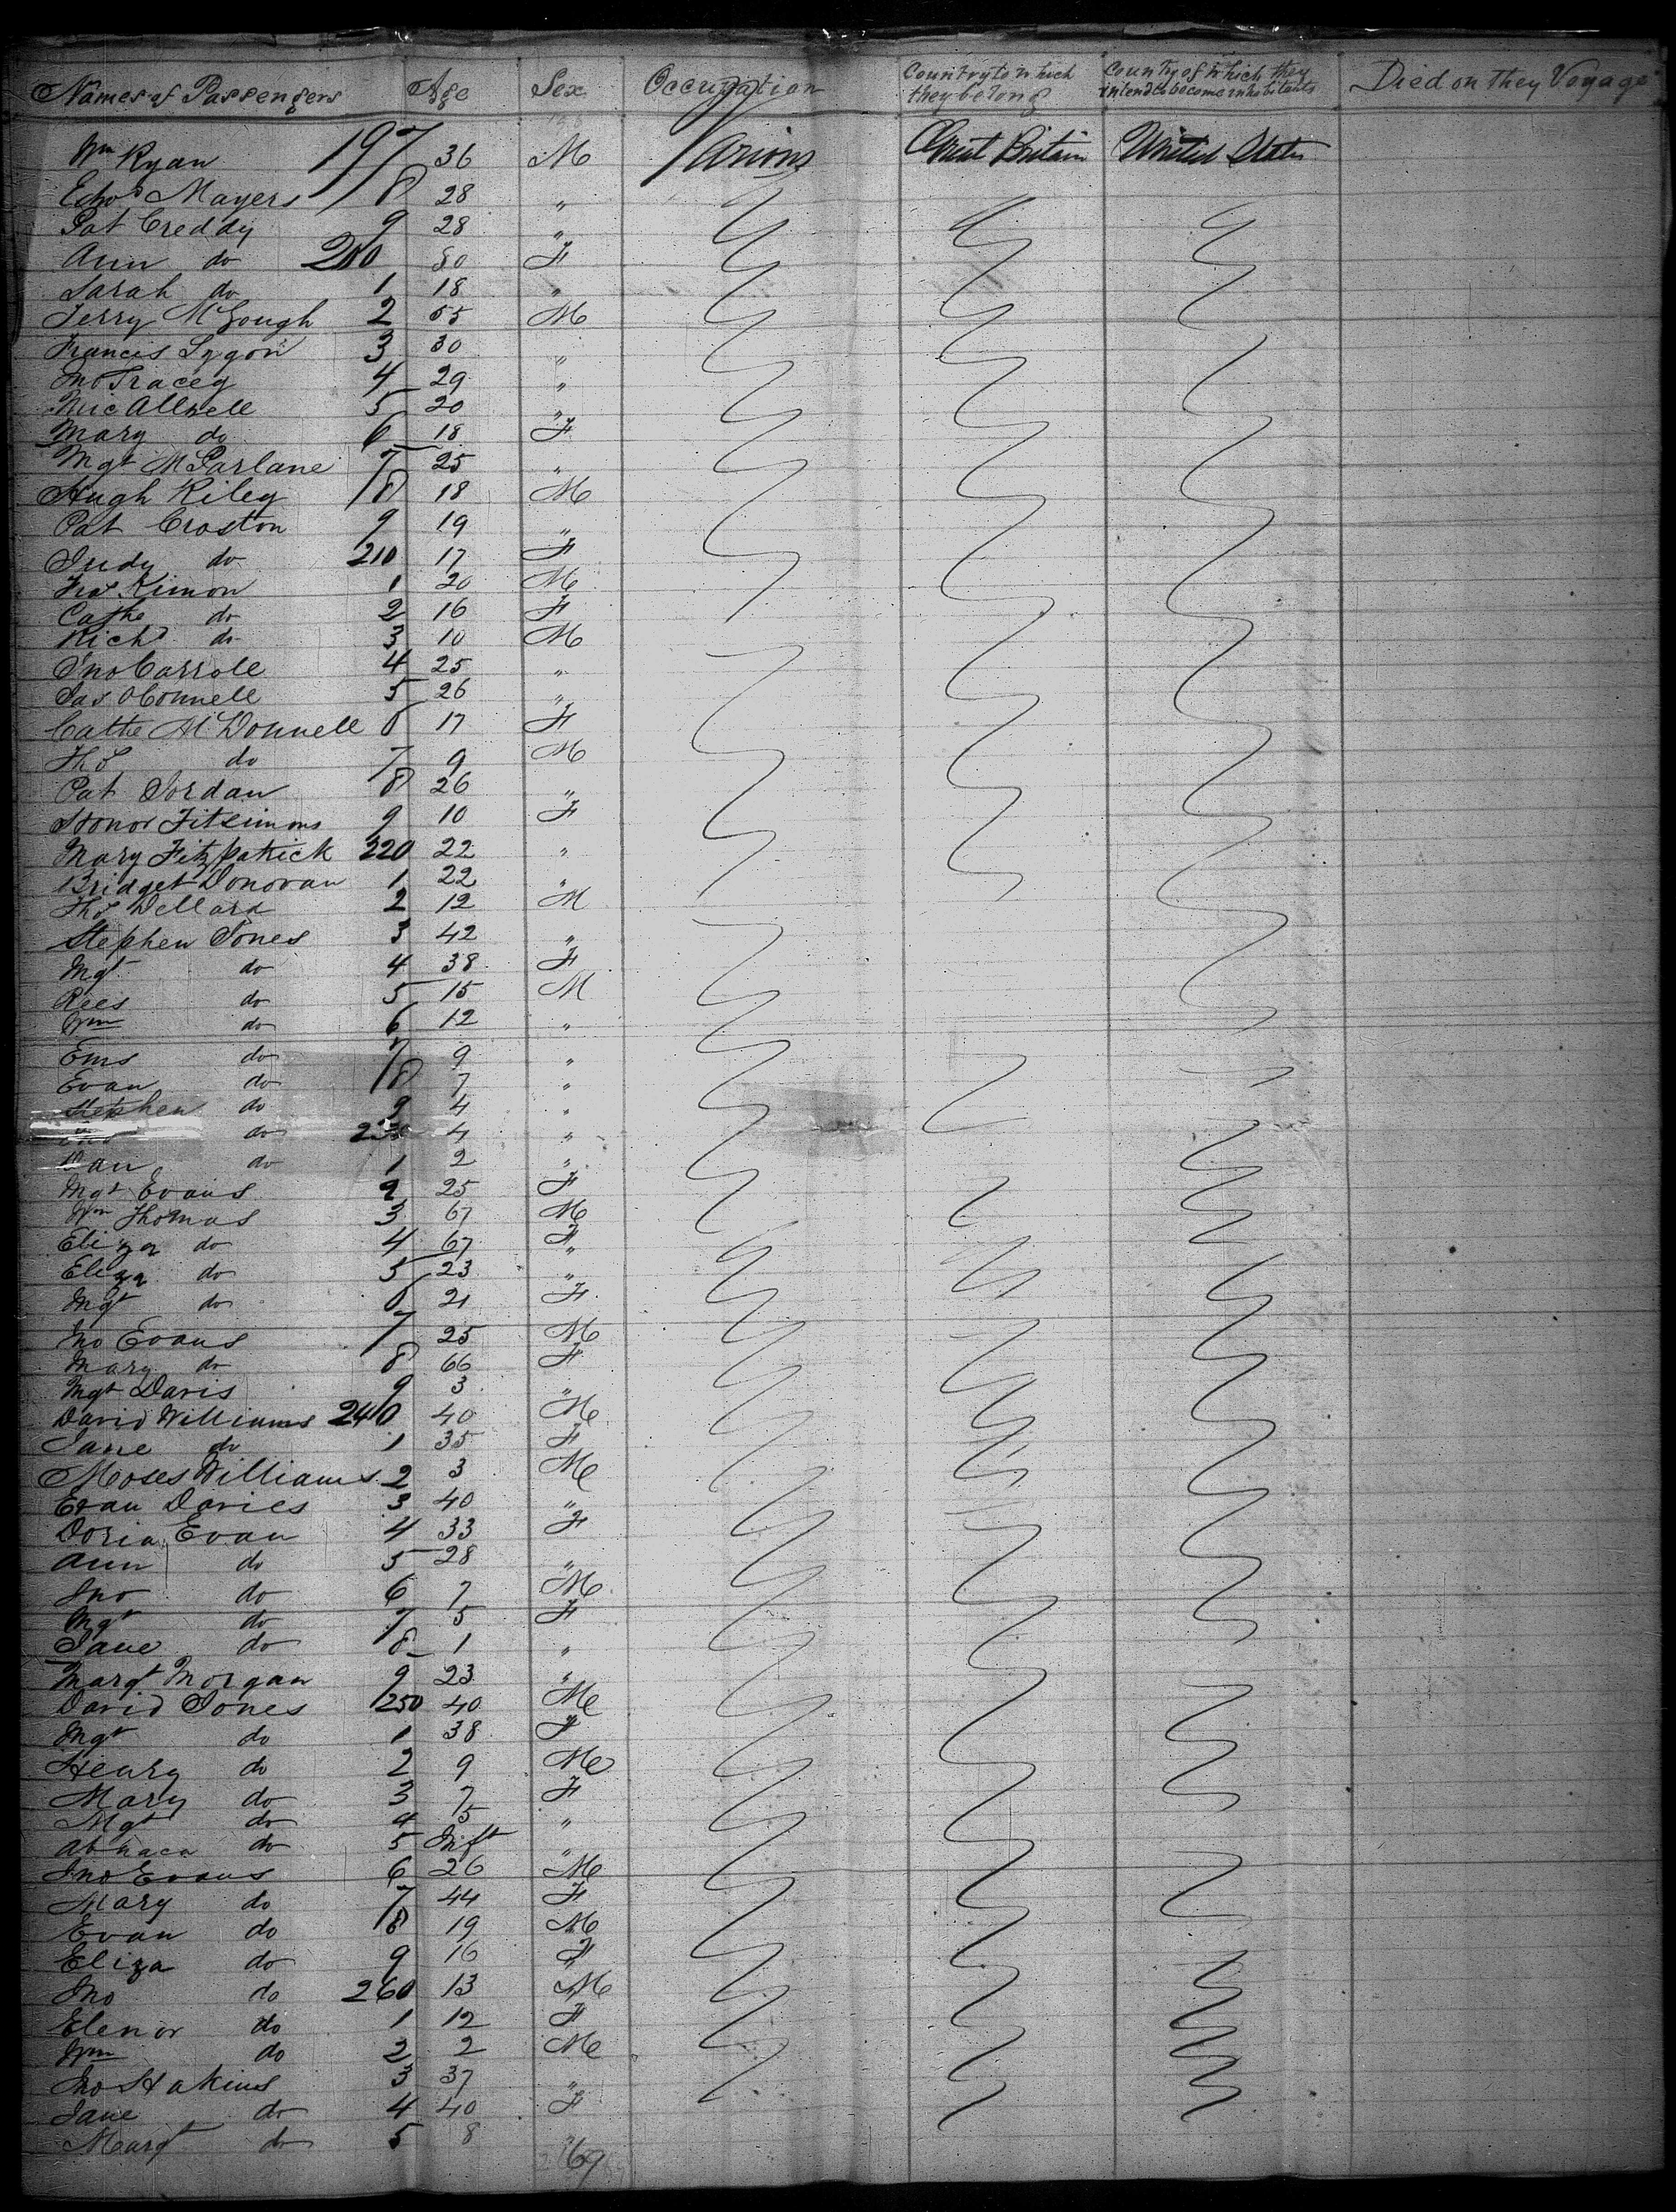 Names of Passengers Age Sex Occupation Country to which they belong Country of which they intend to become inhabitants Died on they Voyage
Wm Ryan 197 36 M Various Great Britain United States
Edwd Mayers 8 28 "
Pat Creddy 9 28 "
Ann do 200 F
Sarah do 1 18 "
Terry McGough 2 55 M
Francis Lygon 3 30 "
Jno Tracey 4 29 "
Mic Allwell 5 20 "
Mary do 6 18 F
Mgt McParlane 7 25 "
Hugh Riley 8 18 M
Pat Croston 9 19 "
Judy do 210 17 F
Kimon 1 20 M
Cathe do 2 16 F
Richd do 3 10 M
Jno Carrole 4 25 "
Jas OConnell 5 26 "
Cathe McDonnell 6 17 F
Thos do 7 9 M
Pat Jordan 8 26 "
Honor Fitzsimons 9 10 F
Mary Fitzpatrick 220 22 "
Bridget Donovan 1 22 "
Thos Dellard 2 12 M
Stephen Jones 3 42 "
Mgt do 4 38 F
Rees do 5 15 M
Wm do 6 12 "
Ems do 7 9 "
Evan do 8 7 "
Stephen do 9 4 "
do 230 4 "
Dan do 1 2 "
Mgt Evans 2 25 F
Wm Thomas 3 67 M
Eliza do 4 67 F
Eliza do 5 23 "
Mgt do 6 21 F
Jno Evans 7 25 M
Mary do 8 66 F
Mgt Davis 9 3 "
David Williams 240 40 M
Jane do 1 35 F
Moses Williams 2 3 M
Evan Davies 3 40 "
Doria Evan 4 33 F
Ann do 5 28 "
Jno do 6 7 M
Mgt do 7 5 F
Jane do 8 1 "
Margt Morgan 9 23 "
David Jones 250 40 M
Mgt do 1 38 F
Henry do 2 9 M
Mary do 3 7 F
Mgt do 4 5 "
do 5 Inft "
Jno Evans 6 26 M
Mary do 7 44 F
Evan do 8 19 M
Eliza do 9 16 F
Jno do 260 13 M
Elenor do 1 12 F
Wm do 2 2 M
Jno Hakins 3 37 "
Jane do 4 40 F
Margt do 5 8 "
69